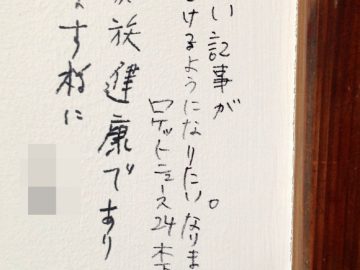 い記事が
けるようになりたい。なりま
ロケットニュース24 木下
族健康であり
ます様に